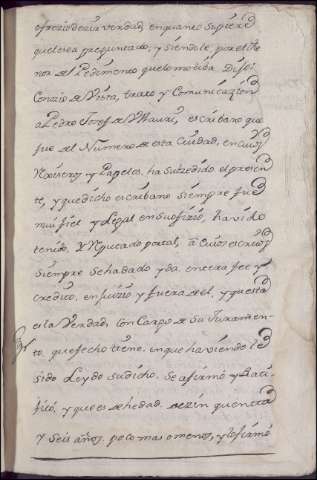 ofrezio dezir verdad, en quanto supiere
que le sea preguntado, y siendole, por el te
nor del Pedimento que lo motiba Dijo: 
Conozio de Vista, trato y Comunicazion
a Pedro Joseph de Vstauris, escribano que
fue del Numero de esta Ciudad, en cuios
Rexistros y Papeles, ha subzedido el presen
te, y que dicho escribano siempre fue
mui fiel y Legal en su ofizio, havido
tenido, y Reputado por tal, a Cuios escritos
siempre se ha dado y da entera fee y
credito, en juizio y fuera de el, y que esta
es la Verdad, con Cargo de su Juramen-
to, que fecho tiene, en que haviendole
sido Leydo su dicho. Se afirmó y Rati
ficó, y que es de hedad de zinquenta
y seis años, poco mas o menos, y lo firmó